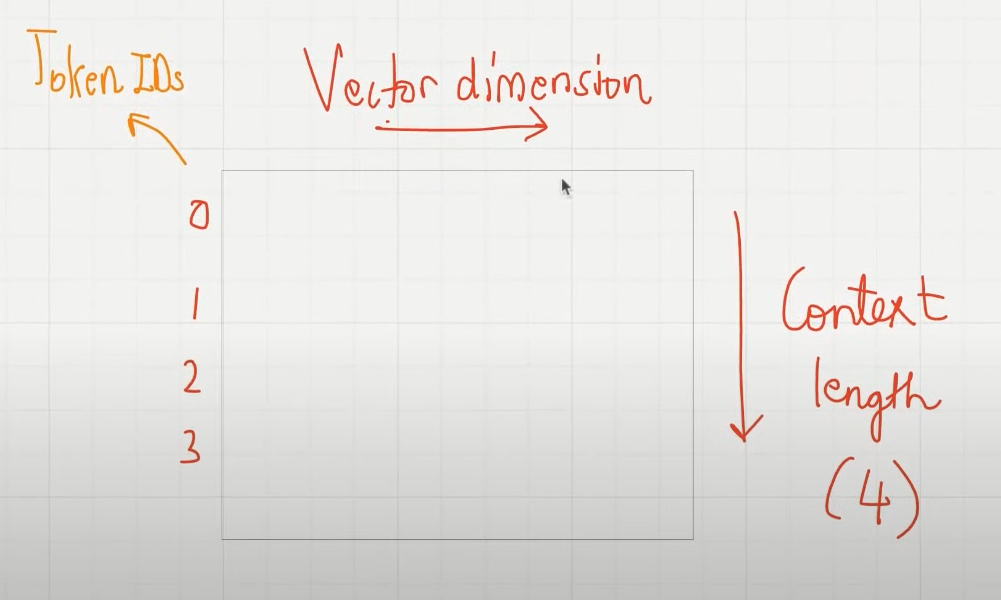 Token IDs
Vector dimension
0
1
2
3
Context
length
(4)